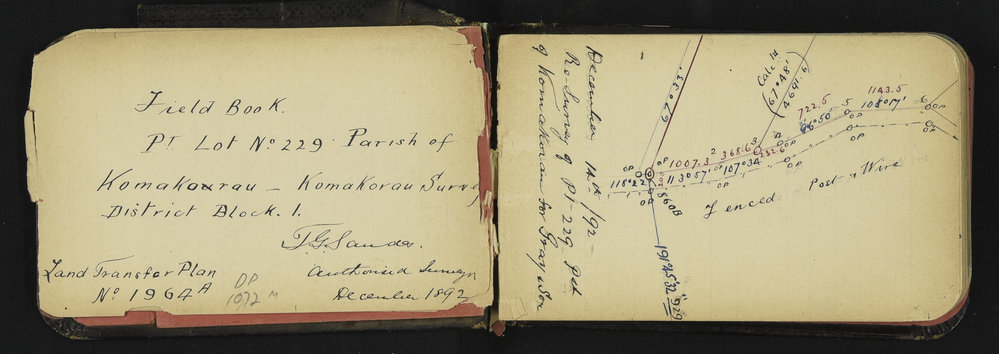 Field Book.
Pt Lot No 229 Parish of
Komakorau - Komakorau Survey
District Block. 1.
T.G. Sandes.
Authorised Surveyor
December 1892
Land Transfer Plan
No 1964 A
DP
1072
December 14th /92 -
Re-Survey of Pt 229 Psh
of Komakorau for Grayson
29°33'
Calc'd
67°48'
4691.6
1143.5
108°17'
722.5
96°50'
368.6
107°34'
252.6
1007.3
113°57'
118°22'
OP
OP
OP
OP
OP
OP
OP
2
3
5
6
Fenced Post & Wire